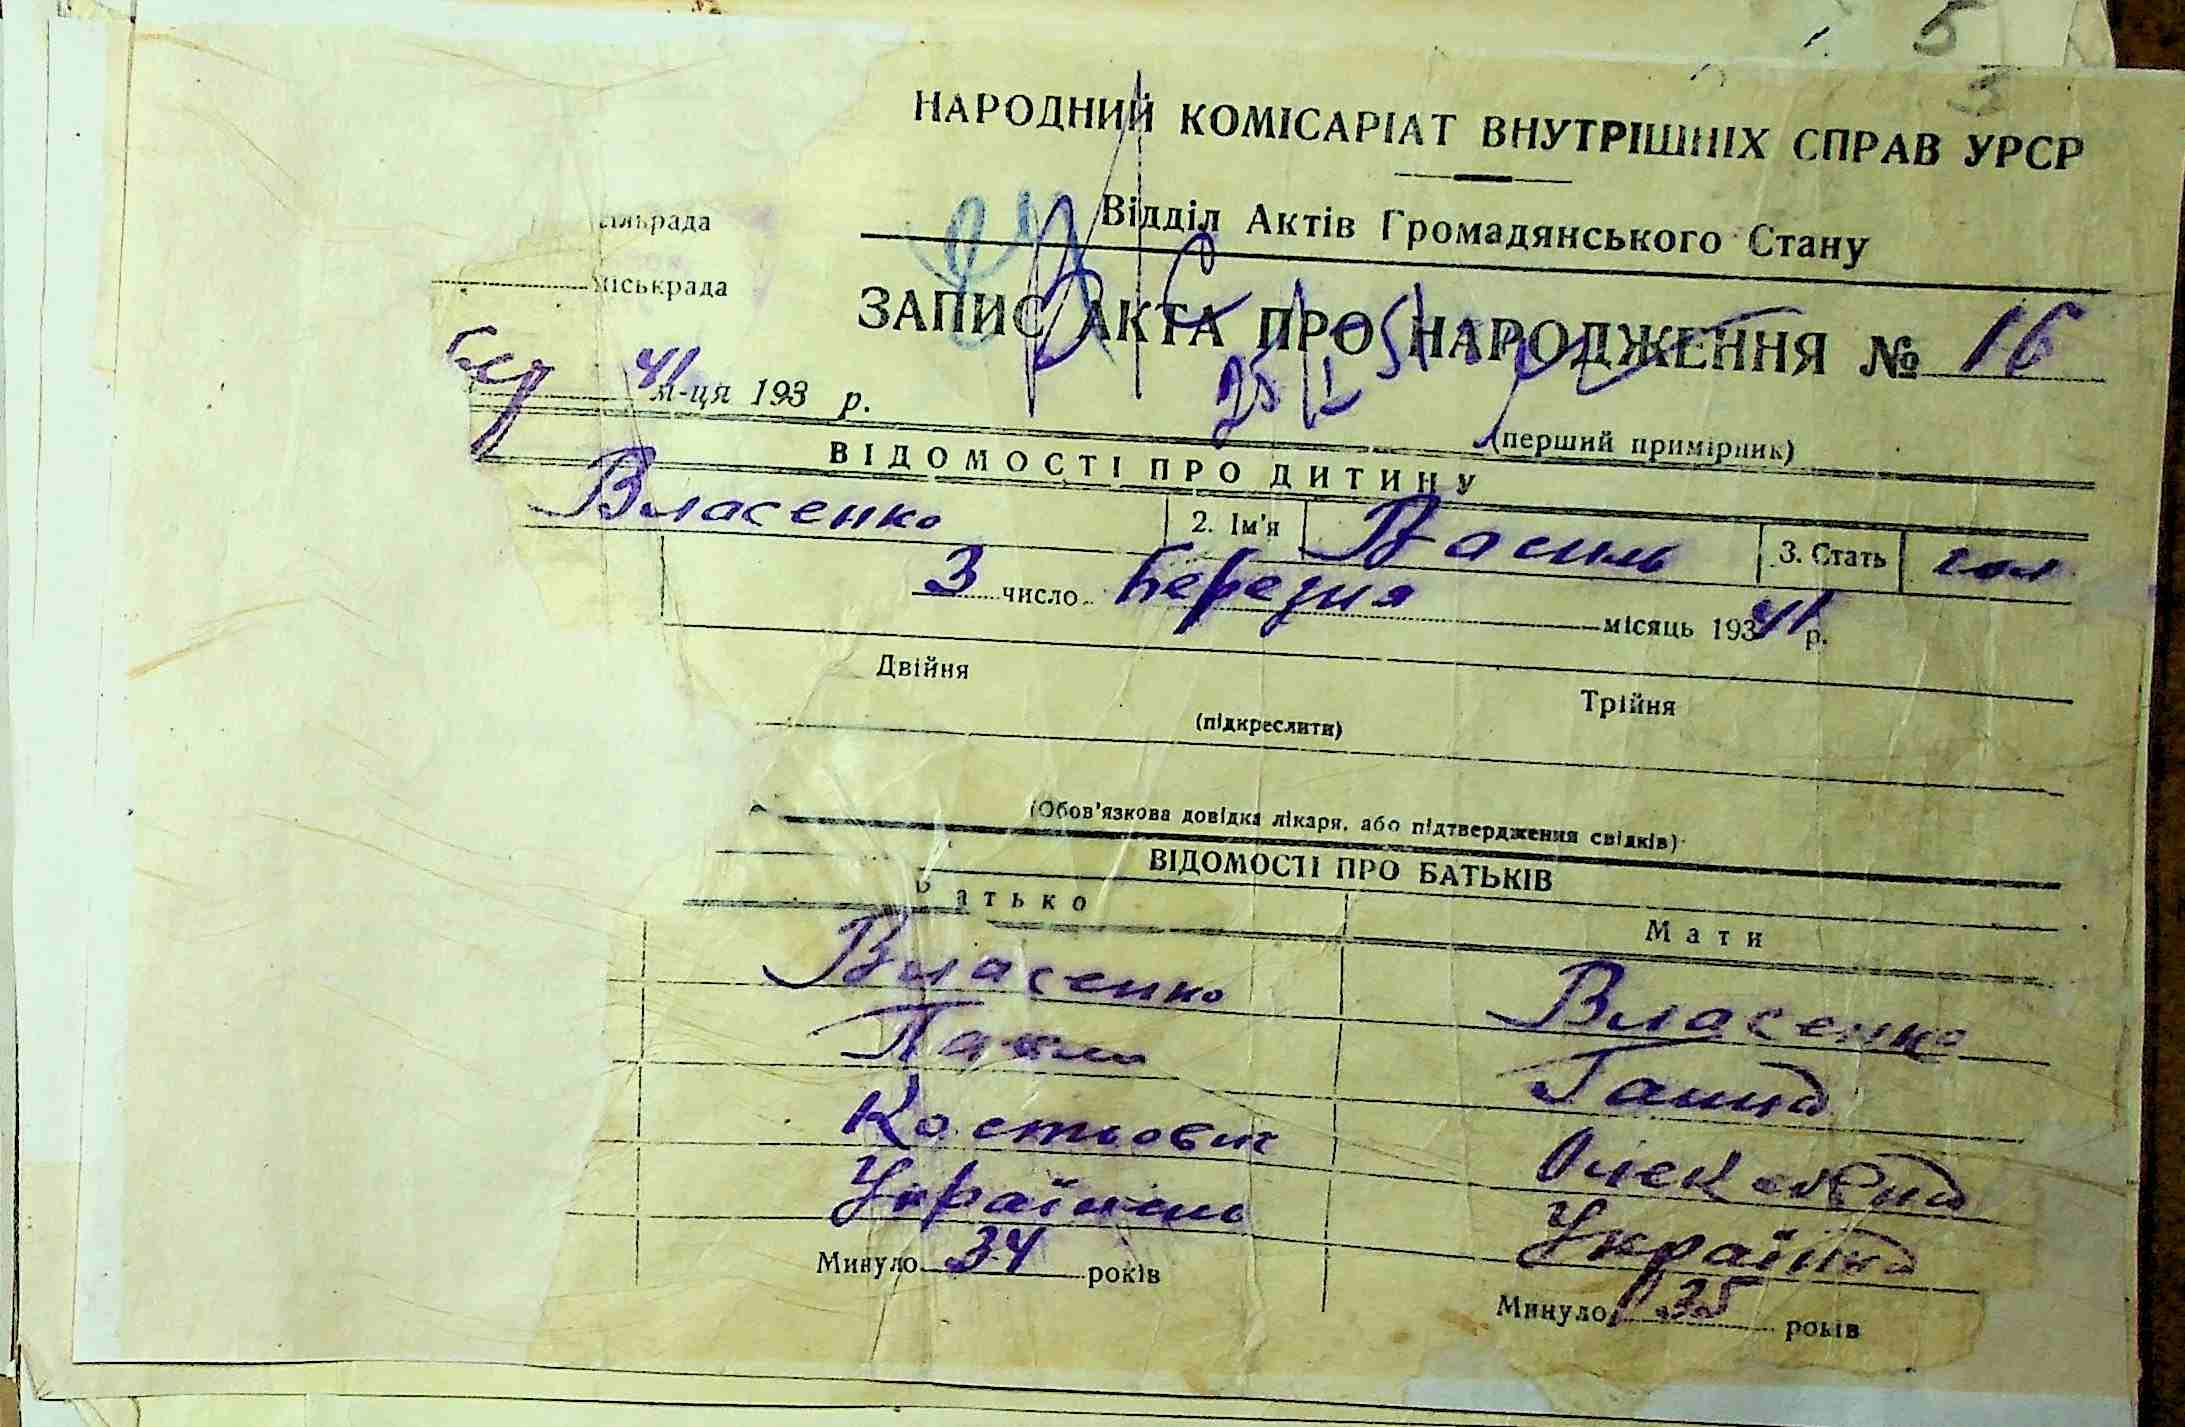 5
3
НАРОДНИЙ КОМІСАРІАТ ВНУТРІШНІХ СПРАВ УРСР
сільрада
Відділ Актів Громадянського Стану
міськрада
ЗАПИС АКТА ПРО НАРОДЖЕННЯ № 16
41 м-ця 193 р.
(перший примірник)
ВІДОМОСТІ ПРО ДИТИНУ
Власенко 2. Ім'я Василь 3. Стать чол
3 число березня місяць 193 41 р.
Двійня Трійня
(підкреслити)
(Обов'язкова довідка лікаря, або підтвердження свідків)
ВІДОМОСТІ ПРО БАТЬКІВ
Батько Мати
Власенко Власенко
Павло Ганна
Костьович
Українець Українка
Минуло 34 років Минуло 35 років